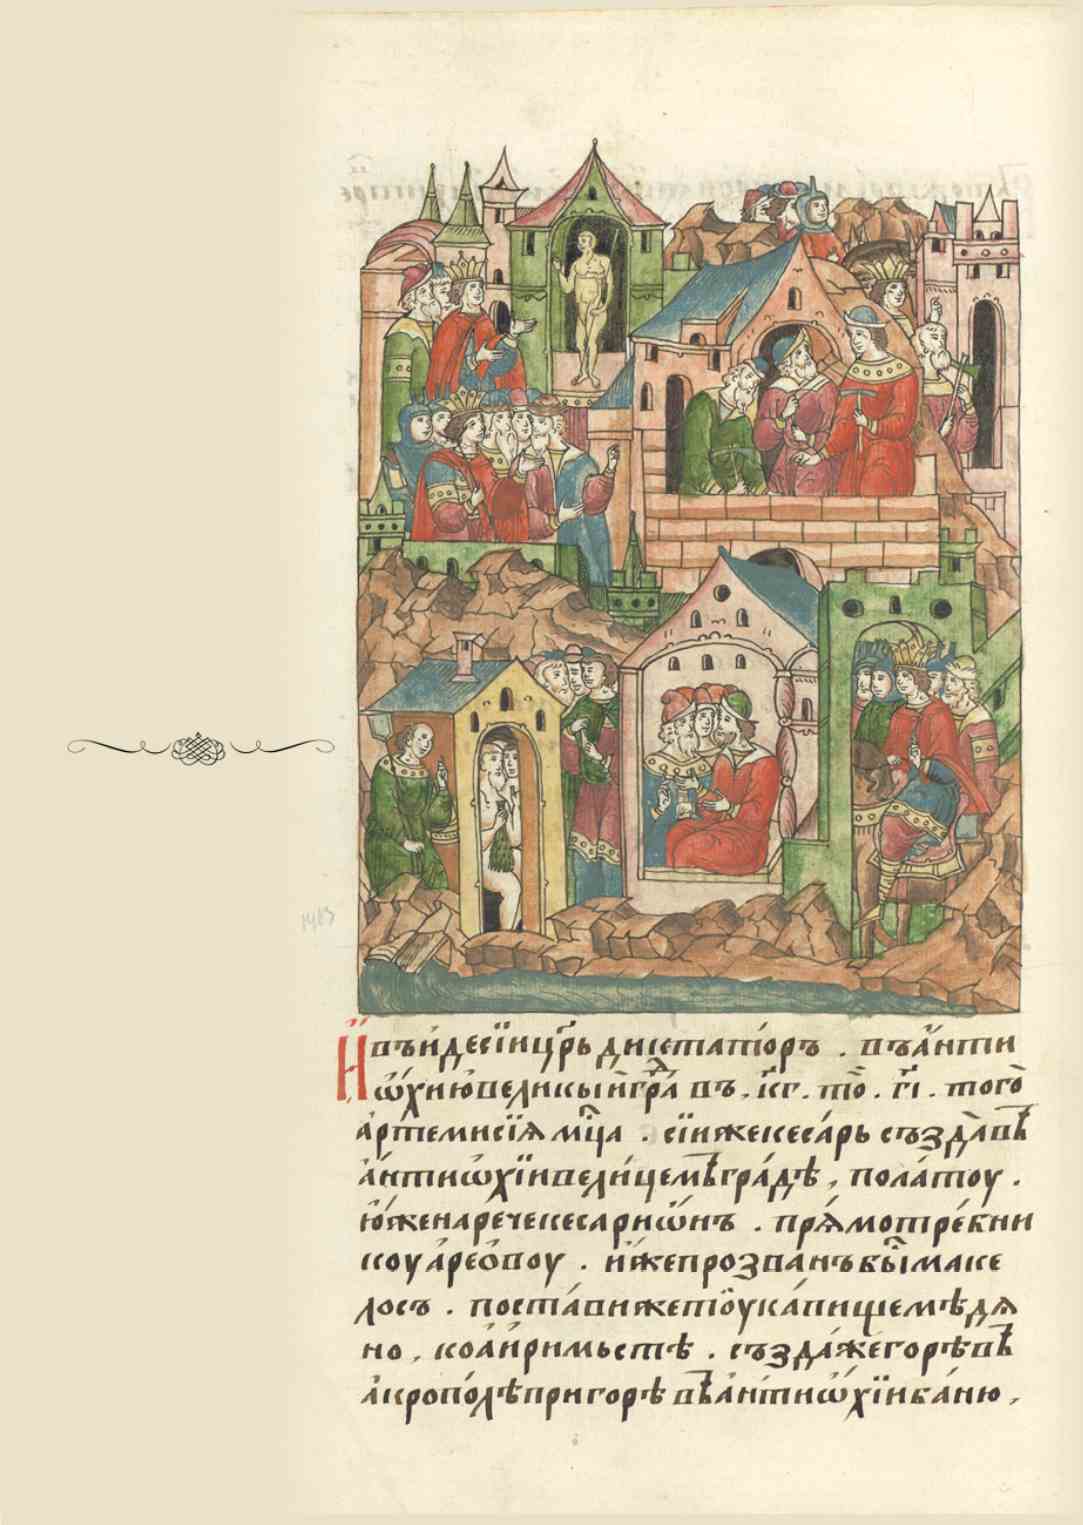 И҆въидесїицр҃ьдиктато́ръ . въа҆нти
ѡ҆хиювеликыи҆гра̑дъ . к҃г . то̑ . г҃і . того̀
а҆ртемисїѧмц҃а . сїижекеса́рьсъзда̀вѣ
а҆нтиѡ҆хїивели́цемъгра́дѣ , пола́тоу .
ю҆женаречекесариѡ́нъ . прѧ́мотре́бни
коуа҆рео́воу . и҆́жепрозва́нъбы̑маке
досъ . поста́вижетоу̀ка́пищемѣдѧ
но , коа҆и҆римьстѣ . създа́жегорѣвъ
а҆кропо́лѣпригорѣ въа҆нтиѡ҆хїиба́ню ,
1483